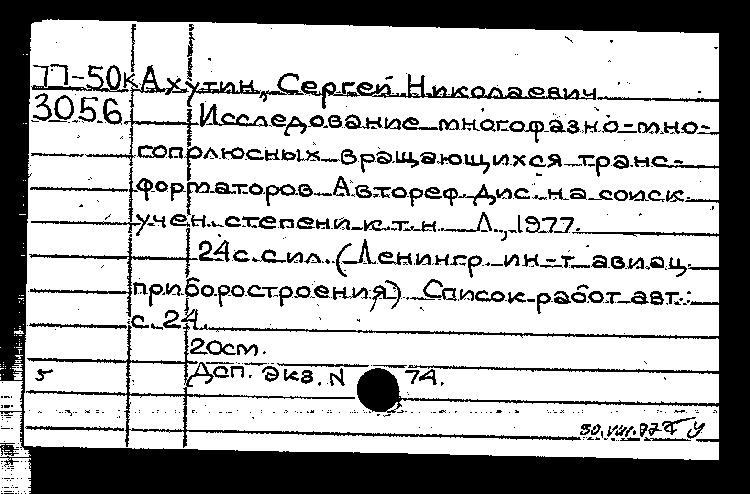 77-50к Ахутин, Сергей Николаевич
3056 Исследование многофазно-мно-
гополюсных вращающихся транс-
форматоров. Автореф. дис. на соиск.
учен. степени к.т.н. Л., 1977.
24 с. с ил. (Ленингр. ин-т авиац.
приборостроения) Список работ авт.:
с. 24.
20см.
5 Доп. экз. N 74.
30.VIII.77